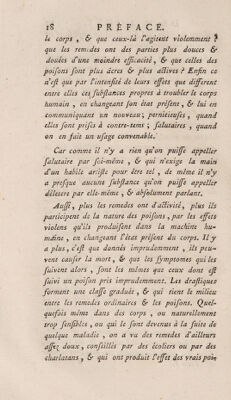 18 PRÉFACE.
le corps, & que ceux-là l'agitent violemment ?
que les remedes ont des parties plus douces &
douées d'une moindre efficacité, & que celles des
poisons sont plus âcres & plus actives ? Enfin ce
n'est que par l'intensité de leurs effets que different
entre elles ces substances propres à troubler le corps
humain, en changeant son état présent, & lui en
communiquant un nouveau; pernicieuses, quand
elles sont prises à contre-tems; salutaires, quand
on en fait un usage convenable.
Car comme il n'y a rien qu'on puisse appeller
salutaire par soi-même, & qui n'exige la main
d'un habile artiste pour être tel, de même il n'y
a presque aucune substance qu'on puisse appeller
délétere par elle-même, & absolument parlant.
Aussi, plus les remedes ont d'activité, plus ils
participent de la nature des poisons, par les effets
violens qu'ils produisent dans la machine hu-
maine, en changeant l'état présent du corps. Il y
a plus, c'est que donnés imprudemment, ils peu-
vent causer la mort, & que les symptomes qui les
suivent alors, sont les mêmes que ceux dont est
suivi un poison pris imprudemment. Les drastiques
forment une classe graduée, & qui tient le milieu
entre les remedes ordinaires & les poisons. Quel-
quefois même dans des corps, ou naturellement
trop sensibles, ou qui le sont devenus à la suite de
quelque maladie, on a vu des remedes d'ailleurs
assez doux, conseillés par des écoliers ou par des
charlatans, & qui ont produit l'effet des vrais poi-